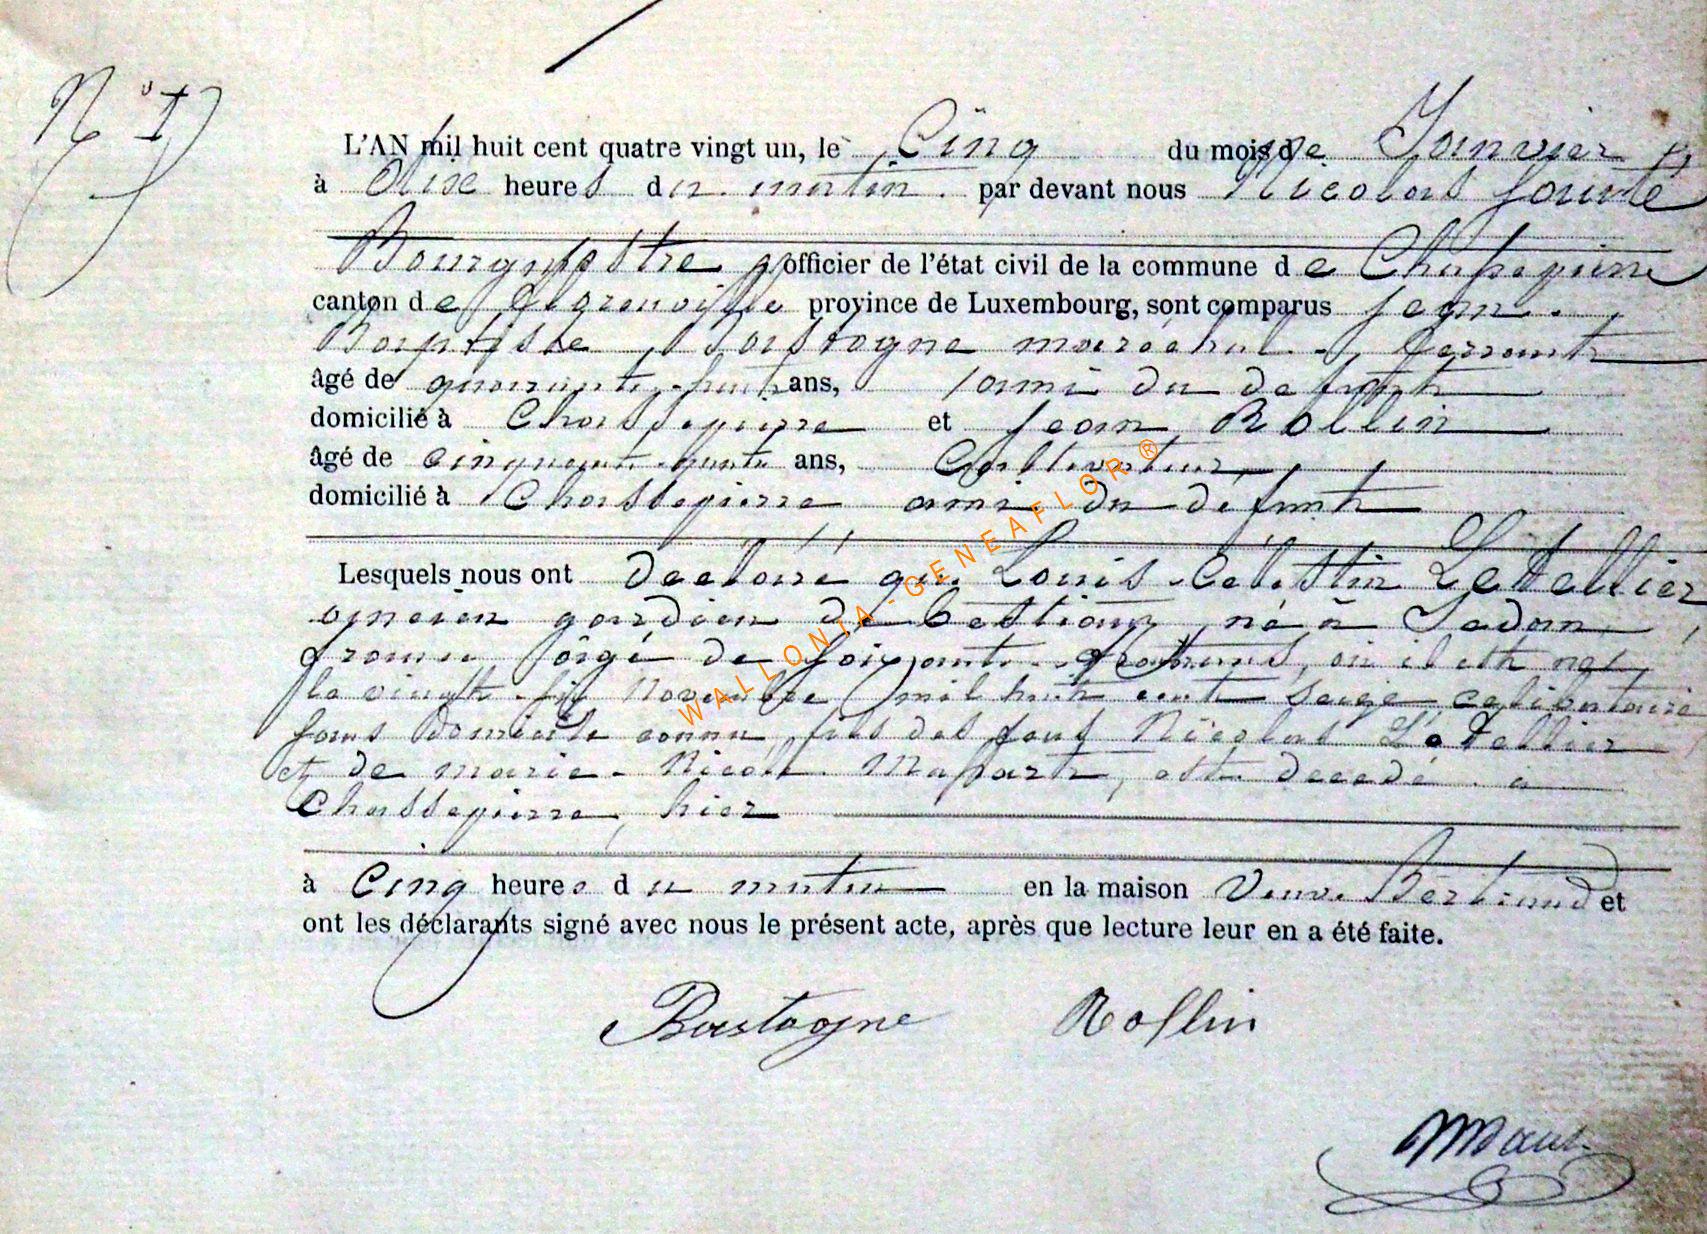 N° 1
L'AN mil huit cent quatre vingt un, le Cinq du mois de Janvier
à dixe heures du matin. par devant nous Nicolas
Bourgmestre officier de l'état civil de la commune de Chassepierre
canton de province de Luxembourg, sont comparus Jean.
Baptiste Bastogne maréchal - ferrant
âgé de quarante-huit ans, ami du defunt
domicilié à Chassepierre et Jean Rollin
âgé de cinquante ans, Cultivateur,
domicilié à Chassepierre ami du défunt
Lesquels nous ont declaré que Louis-Celestin Letellier
ancien gardien de bestiaux, né à Sedan,
france, âgé de soixante - ans, où il est né,
le vingt-six Novembre mil huit cent seize, celibataire
sans domicile connu, fils des feus Nicolas LeTellier
et de marie - Nicole est decedé à
Chassepierre, hier
à Cinq heures du matin en la maison Veuve et
ont les déclarants signé avec nous le présent acte, après que lecture leur en a été faite.
Bastogne Rollin
WALLONIA-GENEAFLOR ®